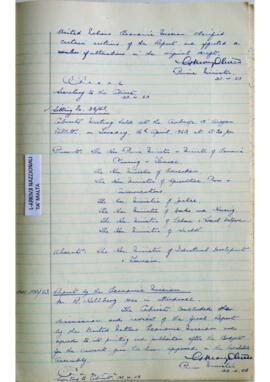 United Nations Economic Mission clarified
certain sections of the Report and effected a
number of alterations in the original draft.
Prime Minister
Secretary to the Cabinet
Cabinet Meeting held at the Auberge d'Aragon
Valletta, on Tuesday, 16th April, 1963 at
Present: The Hon. Prime Minister & Minister of Economic
Planning & Finance
The Hon. Minister of Education
The Hon. Minister of Agriculture, Power &
Communications
The Hon. Minister of Justice
The Hon. Minister of Works and Housing
The Hon. Minister of Labour & Social Welfare
The Hon. Minister of Health
Absent: The Hon. Minister of Industrial Development
& Tourism
L-ARKIVJI NAZZJONALI
TA' MALTA
Report by the Economic Mission
was in attendance.
The Cabinet concluded the
discussion and review of the Report
by the United Nations Economic Mission and
agreed to its printing and publication after the Budget
for the current year has been approved in the Legislative
Assembly.
Prime Minister
Secretary to Cabinet